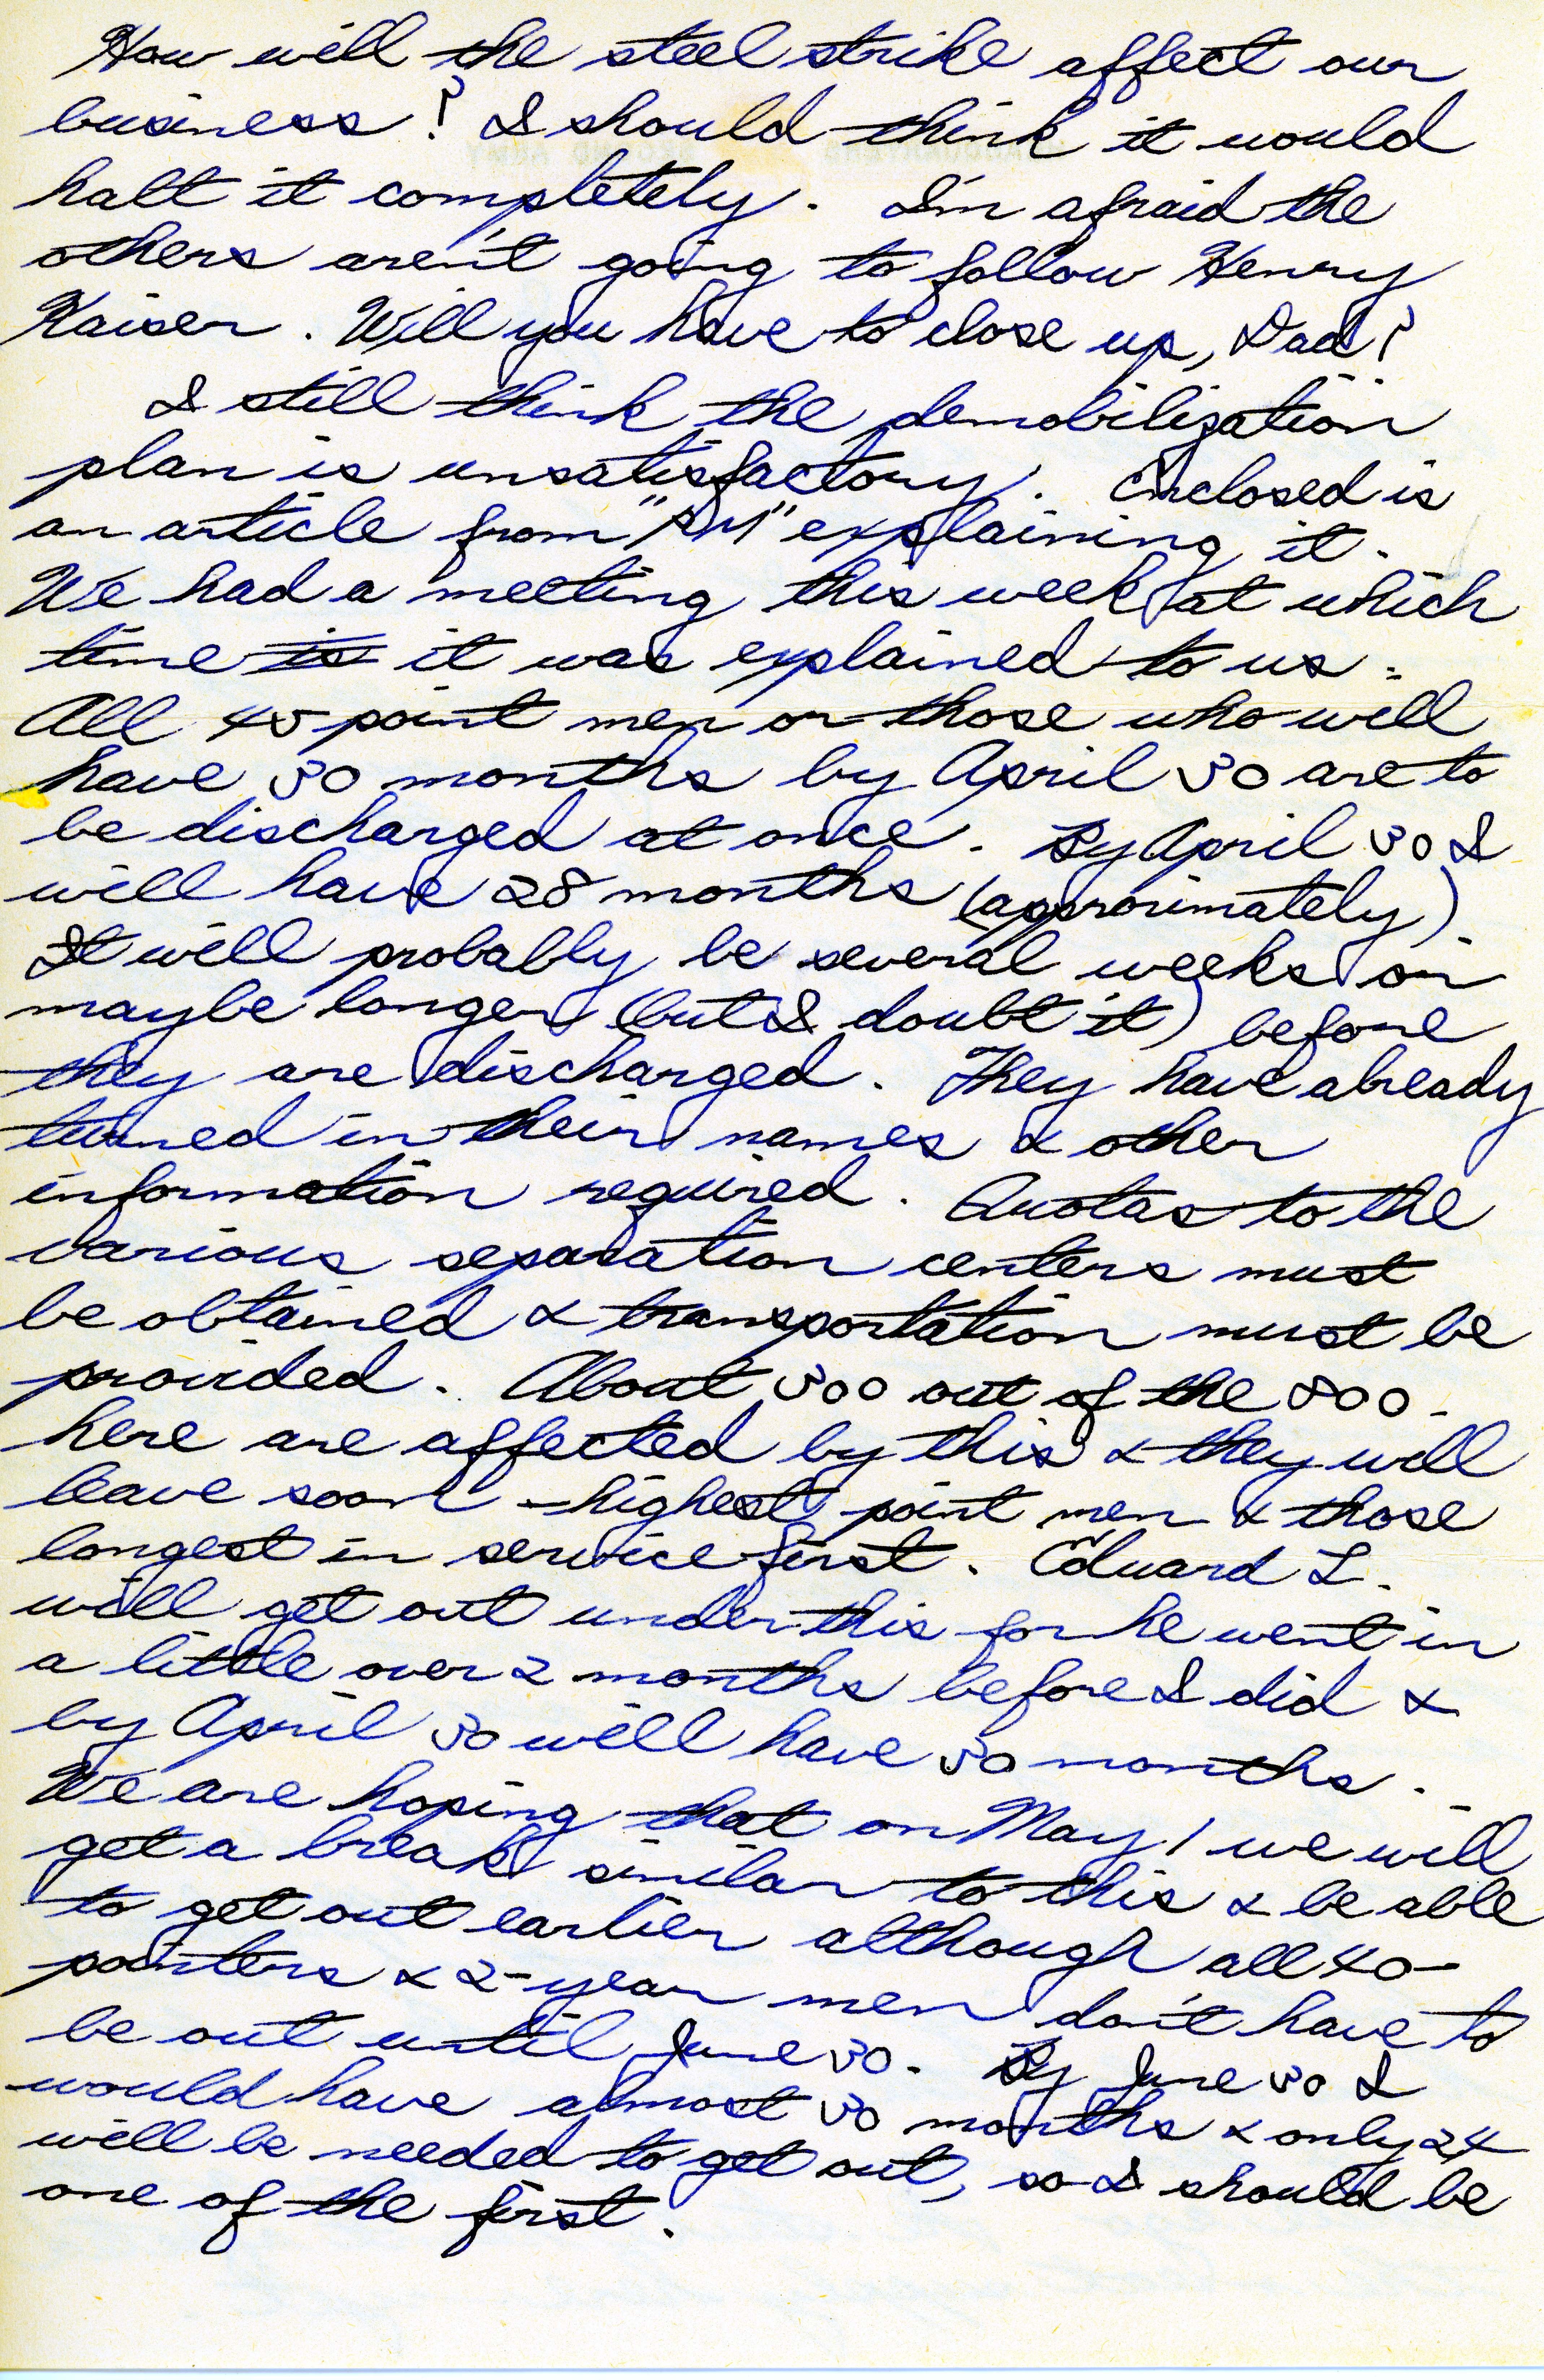 How will the steel strike affect our
business? I should think it would
halt it completely. I'm afraid the
others aren't going to follow Henry
Kaiser. Will you have to close up, Dad?
I still think the demobilization
plan is unsatisfactory. Enclosed is
an article from "PM" explaining it.
We had a meeting this week at which
time is it was explained to us.
All 45 point men or those who will
have 30 months by April 30 are to
be discharged at once. By April 30 I
will have 28 months (approximately).
It will probably be several weeks or
maybe longer (but I doubt it) before
they are discharged. They have already
turned in their names & other
information required. Quotas to the
various separation centers must
be obtained & transportation must be
provided. About 300 out of the 800
here are affected by this & they will
leave soon - highest point men & those
longest in service first. Edward L.
will get out under this for he went in
a little over 2 months before I did &
by April 30 will have 30 months.
We are hoping that on May 1 we will
get a break similar to this & be able
to get out earlier although all 40-
pointers & 2-year men don't have to
be out until June 30. By June 30 I
would have almost 30 months & only 24
will be needed to get out, so I should be
one of the first.